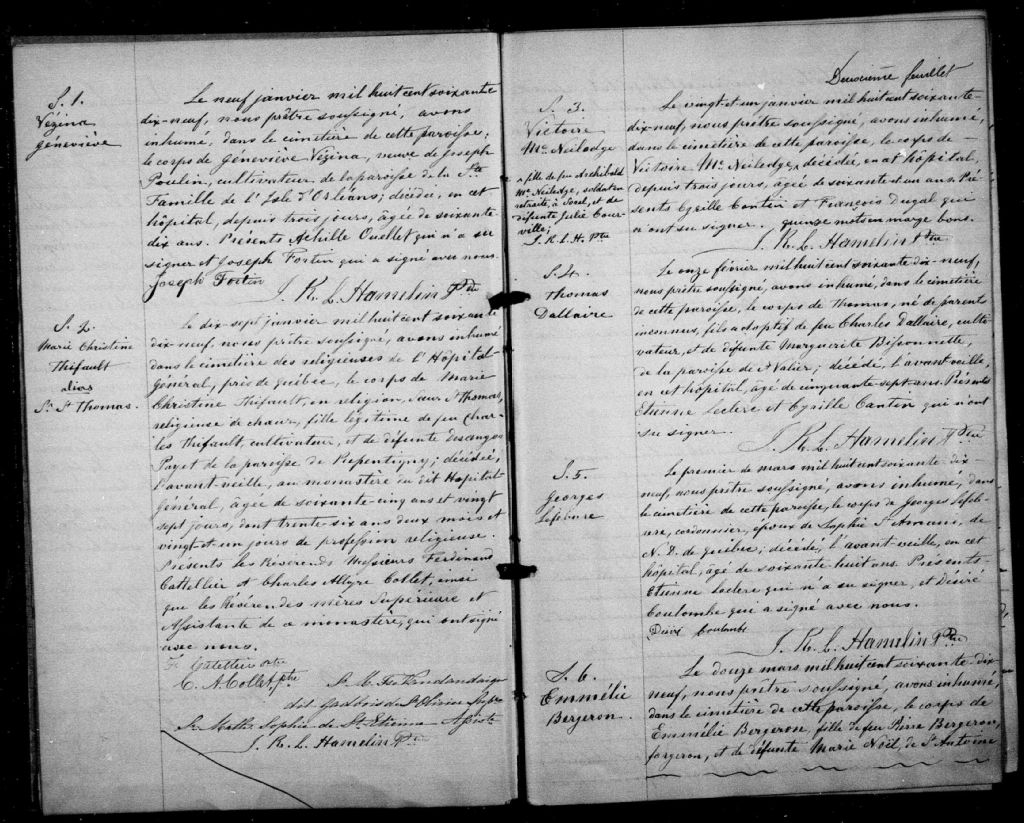 S. 1.
Vézina
Geneviève
Le neuf janvier mil huit cent soixante
dix-neuf, nous prêtre soussigné, avons
inhumé, dans le cimetière de cette paroisse,
le corps de Geneviève Vézina, veuve de Joseph
Poulin, cultivateur de la paroisse de la Ste
Famille de l'Isle d'Orléans; décédée, en cet
hôpital, depuis trois jours, âgée de soixante
dix ans. Présents Achille Ouellet qui n'a su
signer et Joseph Fortin qui a signé avec nous.
Joseph Fortin
J. R. L. Hamelin Ptre
S. 2.
Marie Christine
Thifault
dias
Sr. St Thomas.
Le dix-sept janvier mil huit cent soixante
dix-neuf, nous prêtre soussigné, avons inhumé
dans le cimetière des religieuses de l'Hôpital-
Général, près de Québec, le corps de Marie
Christine Thifault, en religion, Sœur St Thomas,
religieuse de chœur, fille légitime de feu Char-
les Thifault, cultivateur, et de défunte Desanges
Payet de la paroisse de Repentigny; décédée,
l'avant-veille, au monastère du dit Hôpital-
Général, âgée de soixante-cinq ans et vingt
sept jours, dont trente-six ans deux mois et
vingt-et-un jours de profession religieuse.
Présents les Révérends Messieurs Ferdinand
Catellier et Charles Allyre Collet, ainsi
que les Révérendes mères Supérieure et
Assistante de ce monastère, qui ont signé
avec nous.
F. Catellier ptre
C. A. Collet, ptre
St Olivier Supre
Sr. Math. Sophie de St Etienne Assiste
J. R. L. Hamelin Ptre
Deuxième feuillet
S. 3.
Victoire
Mc Neiledge
fille de feu Archibald
Mc Neiledge, soldat en
retraite, à Sorel, et de
défunte Julie Cour-
ville;
J. R. L. H. Ptre
Le vingt-et-un janvier mil huit cent soixante-
dix-neuf, nous prêtre soussigné, avons inhumé,
dans le cimetière de cette paroisse, le corps de
Victoire Mc Neiledge, décédée, en cet hôpital,
depuis trois jours, âgée de soixante et un ans. Pré-
sents Cyrille Cantin et François Dugal qui
n'ont su signer. quinze mots en marge bons.
J. R. L. Hamelin Ptre
S. 4.
Thomas
Dallaire
Le onze février mil huit cent soixante dix-neuf,
nous prêtre soussigné, avons inhumé, dans le cimetière
de cette paroisse, le corps de Thomas, né de parents
inconnus, fils adoptif de feu Charles Dallaire, culti-
vateur, et de défunte Marguerite Bissonnette,
de la paroisse de St Valier; décédé, l'avant-veille,
en cet hôpital, âgé de cinquante-sept ans. Présents
Etienne Leclerc et Cyrille Cantin qui n'ont
su signer.
J. R. L. Hamelin Ptre
S. 5.
Georges
Lefebvre
Le premier de mars mil huit cent soixante-dix
neuf, nous prêtre soussigné, avons inhumé, dans
le cimetière de cette paroisse, le corps de Georges Lefeb-
vre, cordonnier, époux de Sophie St Amand, de
N. D. de Québec; décédé, l'avant-veille, en cet
hôpital, âgé de soixante huit ans. Présents
Etienne Leclerc qui n'a su signer, et Désiré
Coulombe qui a signé avec nous.
Désiré Coulombe
J. R. L. Hamelin Ptre
S. 6.
Emmélie
Bergeron.
Le douze mars mil huit cent soixante-dix
neuf, nous prêtre soussigné, avons inhumé,
dans le cimetière de cette paroisse, le corps de
Emmélie Bergeron, fille de feu Pierre Bergeron,
forgeron, et de défunte Marie Noël, de St Antoine